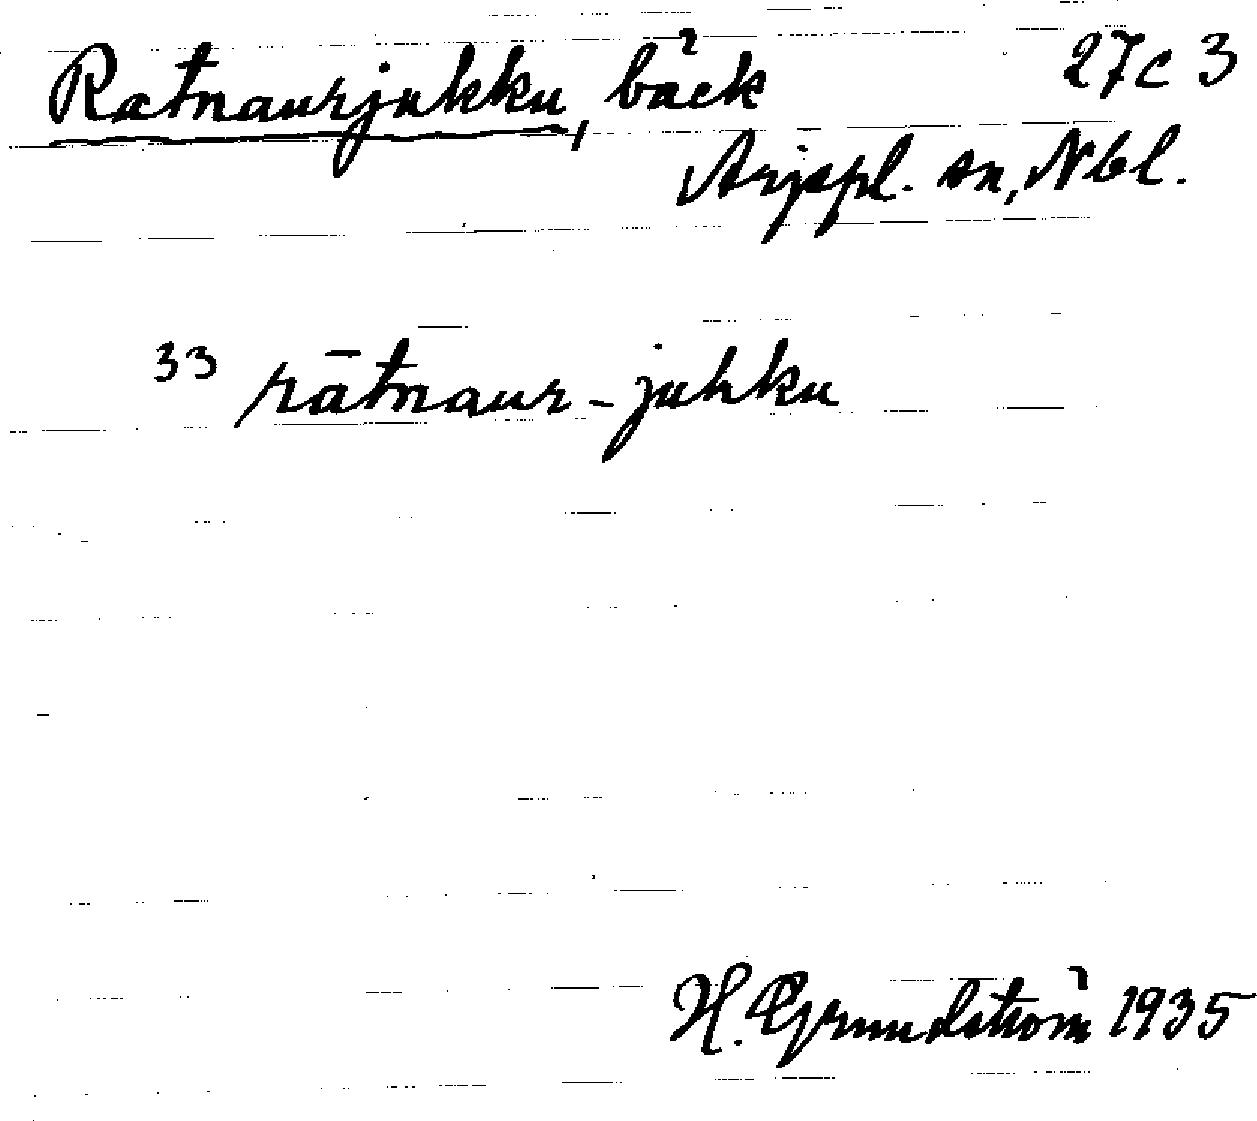 Ratnaurjukku, bäck 27c 3
Arjepl. sn, Nbl.
33 rātnaur-juhku
H. Grundström 1935